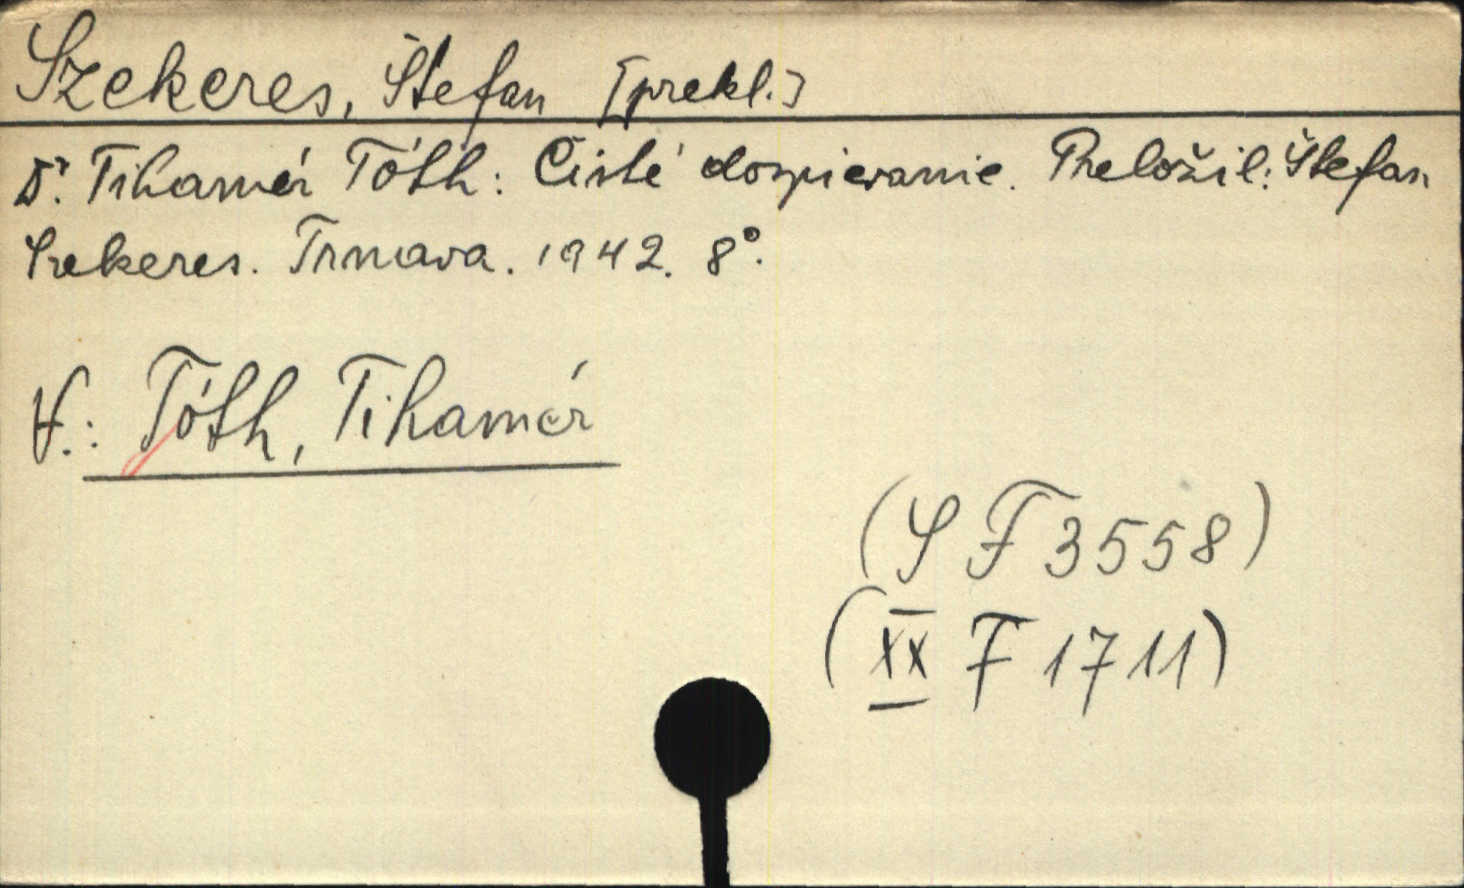 Szekeres, Štefan [prekl.]
Dr. Tihamér Tóth: Čisté dozpievanie. Preložil: Štefan
Szekeres. Trnava. 1942. 8°.
V.: Tóth, Tihamér
(S F 3558)
(XX F 1711)